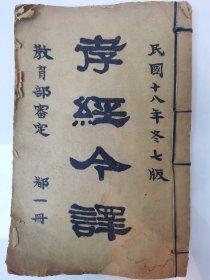 民國十八年冬七版
孝經今譯
教育部審定 都一冊